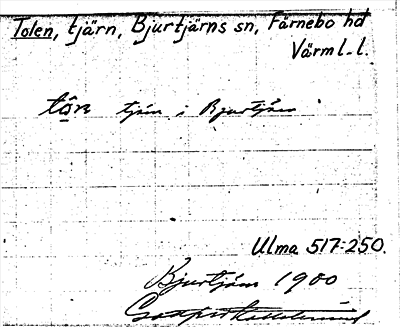 Tolen, tjärn, Bjurtjärns sn, Färnebo hd
Värml. l.
tjärn i Bjurtjärn
Ulma 517:250.
Bjurtjärn 1900